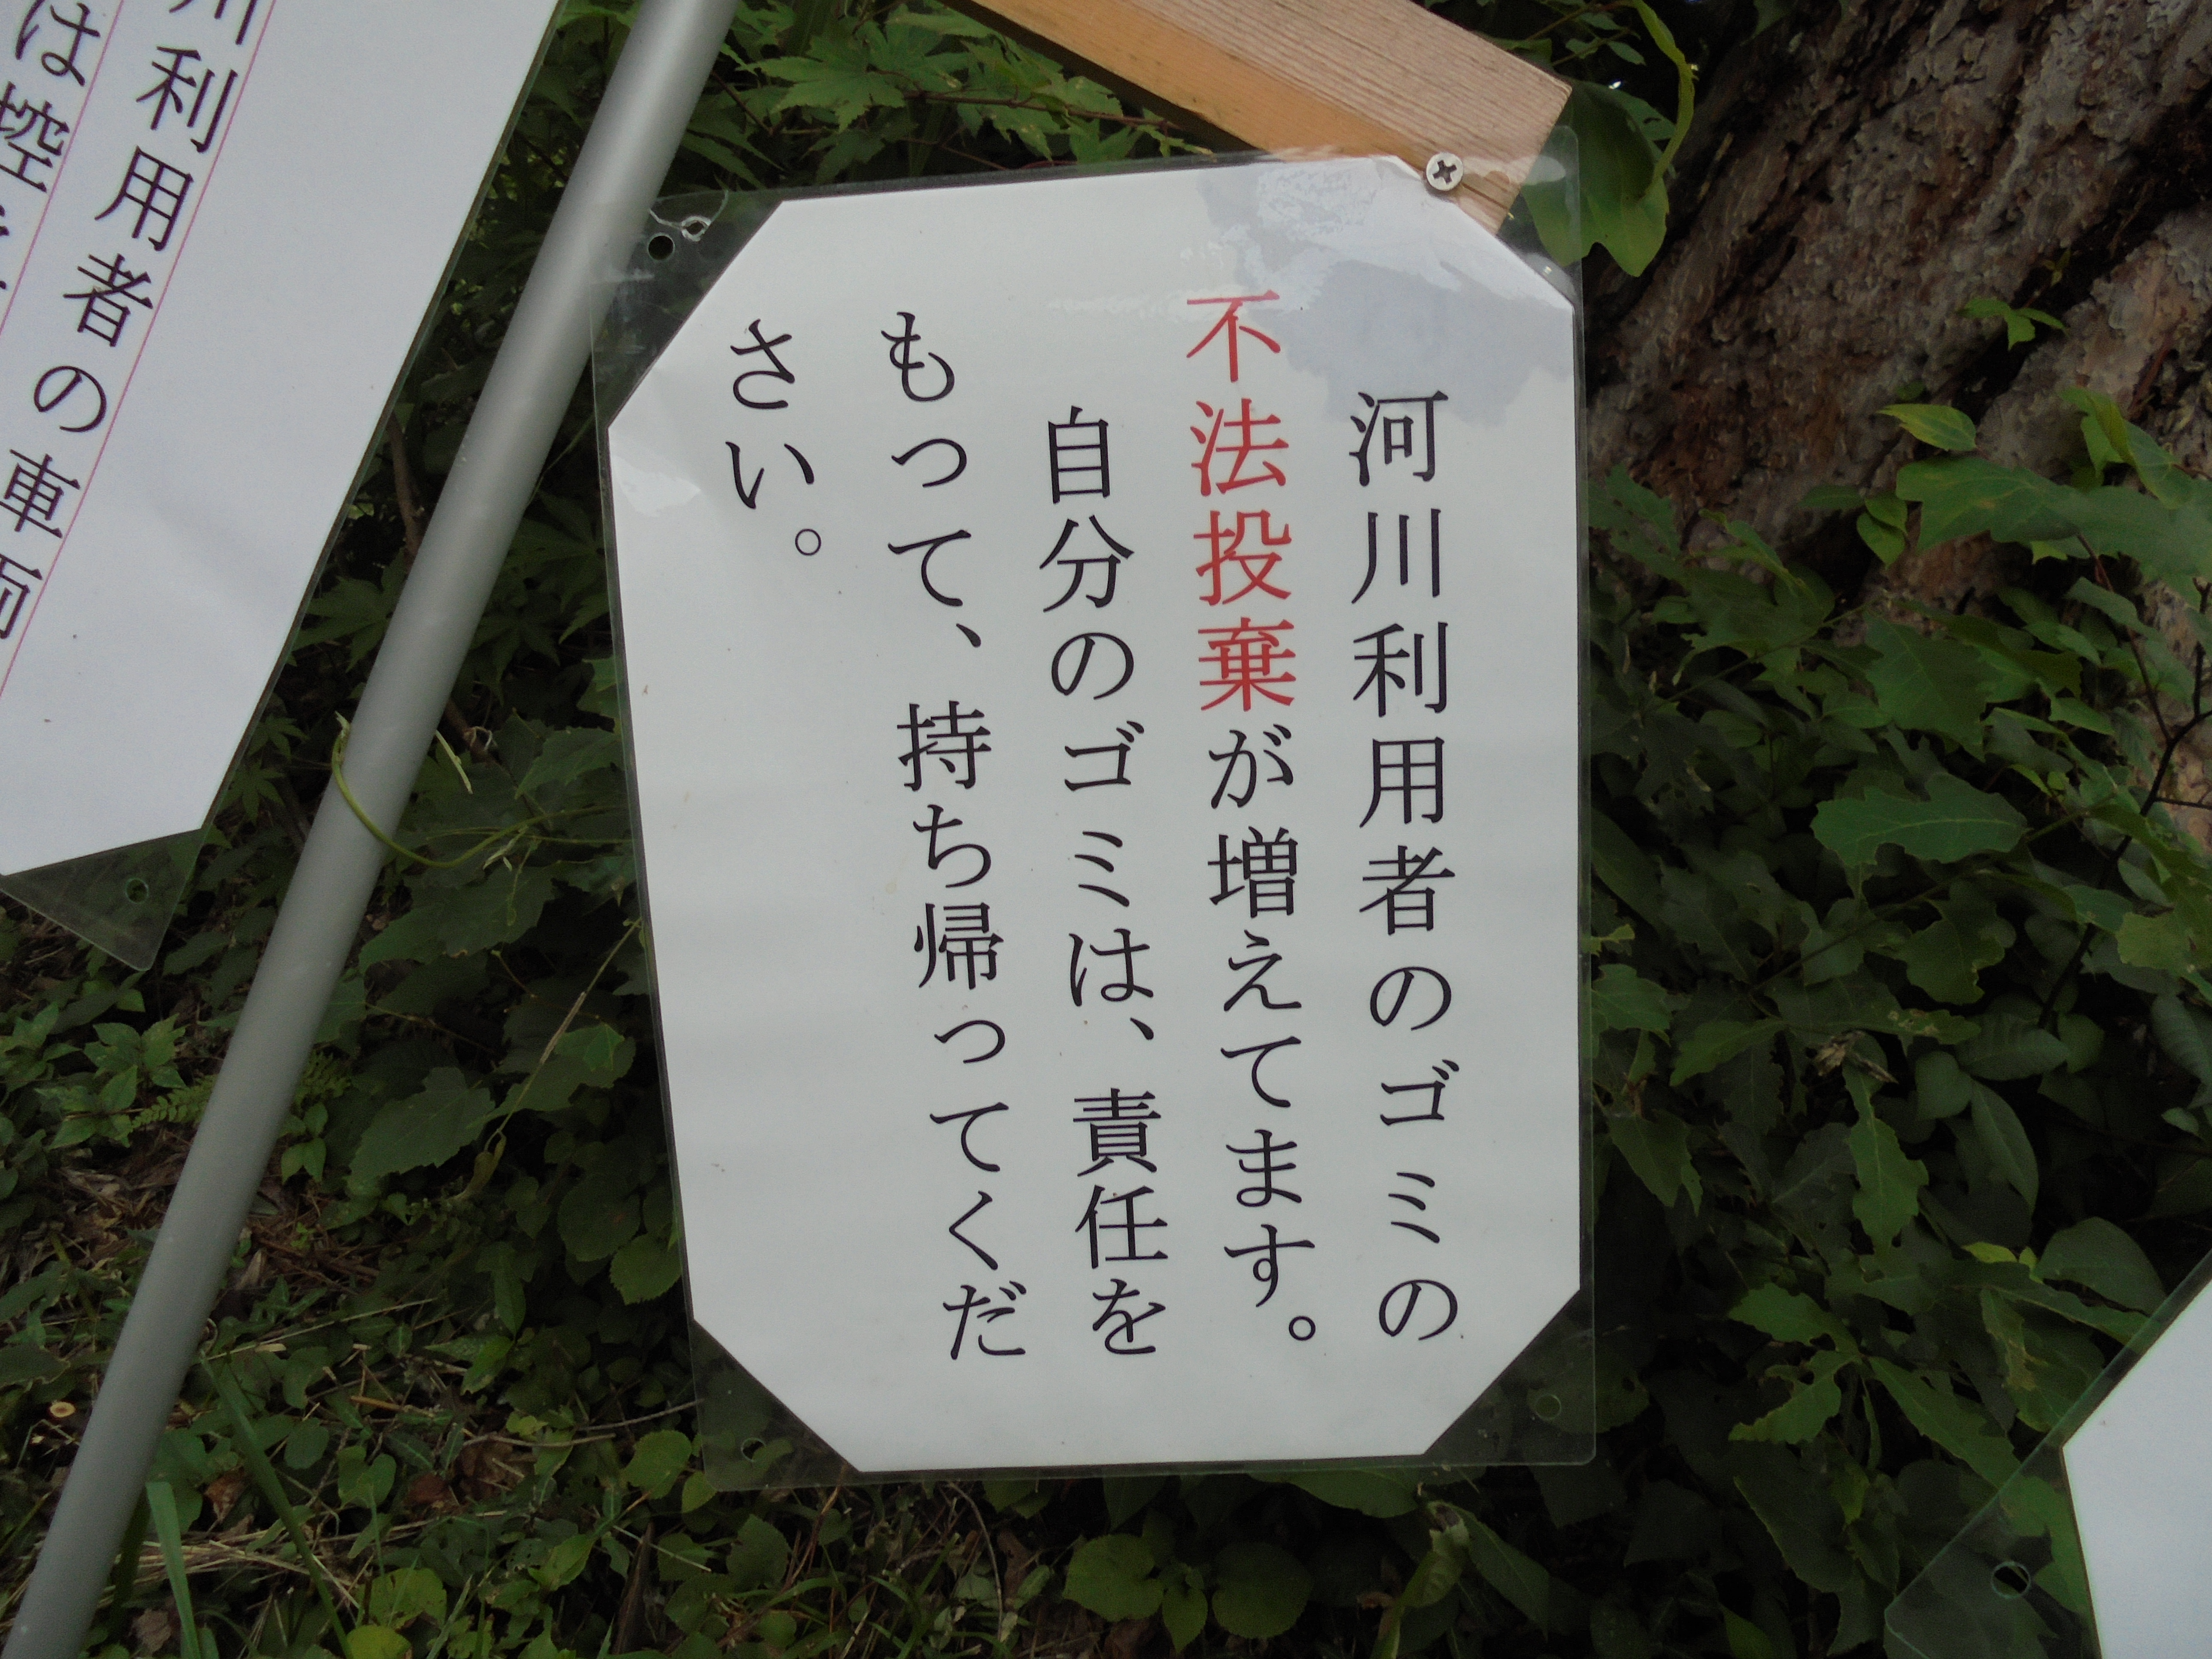 河川利用者のゴミの
不法投棄が増えてます。
自分のゴミは、責任を
もって、持ち帰ってくだ
さい。
川利用者の車両
は控